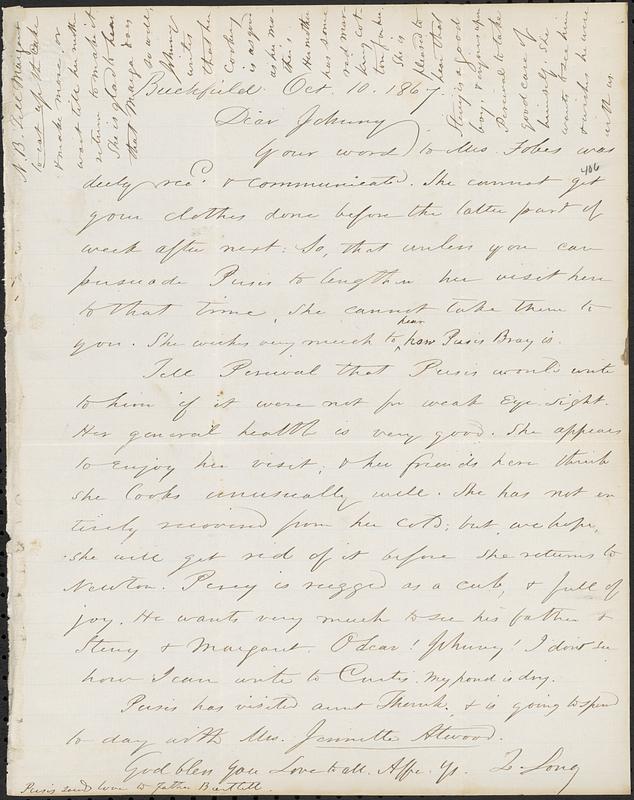 Buckfield Oct. 10. 1867.
Dear Johnny
Your word to Mrs. Fobes was
duly recd. & communicated. She cannot get
your clothes done before the latter part of
week after next: So, that unless you can
persuade Persis to lengthen her visit here
to that time, she cannot take them to
you. She wishes very much to hear how Persis Bray is.
Tell Percival that Persis would write
to him if it were not for weak Eye-Sight.
Her general health is very good. She appears
to enjoy her visit; & her friends here think
she looks unusually well. She has not en
tirely recovered from her cold; but, we hope,
she will get rid of it before she returns to
Newton. Percy is rugged as a cub, & full of
joy. He wants very much to see his father &
Steny & Margaret. O dear! Johnny! I dont see
how I can write to Curtis. My pond is dry.
Persis has visited aunt Thank. & is going to spend
to day with Mrs. Jennette Atwood.
God bless you Love to all. Affec. Yr. Z. Long
Persis sends love to Father Bartlett.
406
N.B. Tell Margaret
to eat up the cake
& make more, or
wait till her
return to make it
She is glad to hear
that Marga does
so well,
Johnny
writes
that her
Cooking
is as good
as her mo-
ther's. Her mother
has some
red
She is
pleased to
hear that
Steny is a good
boy, &
Percival to take
good care of
himself. She
wants to see him
& wishes he were
with us